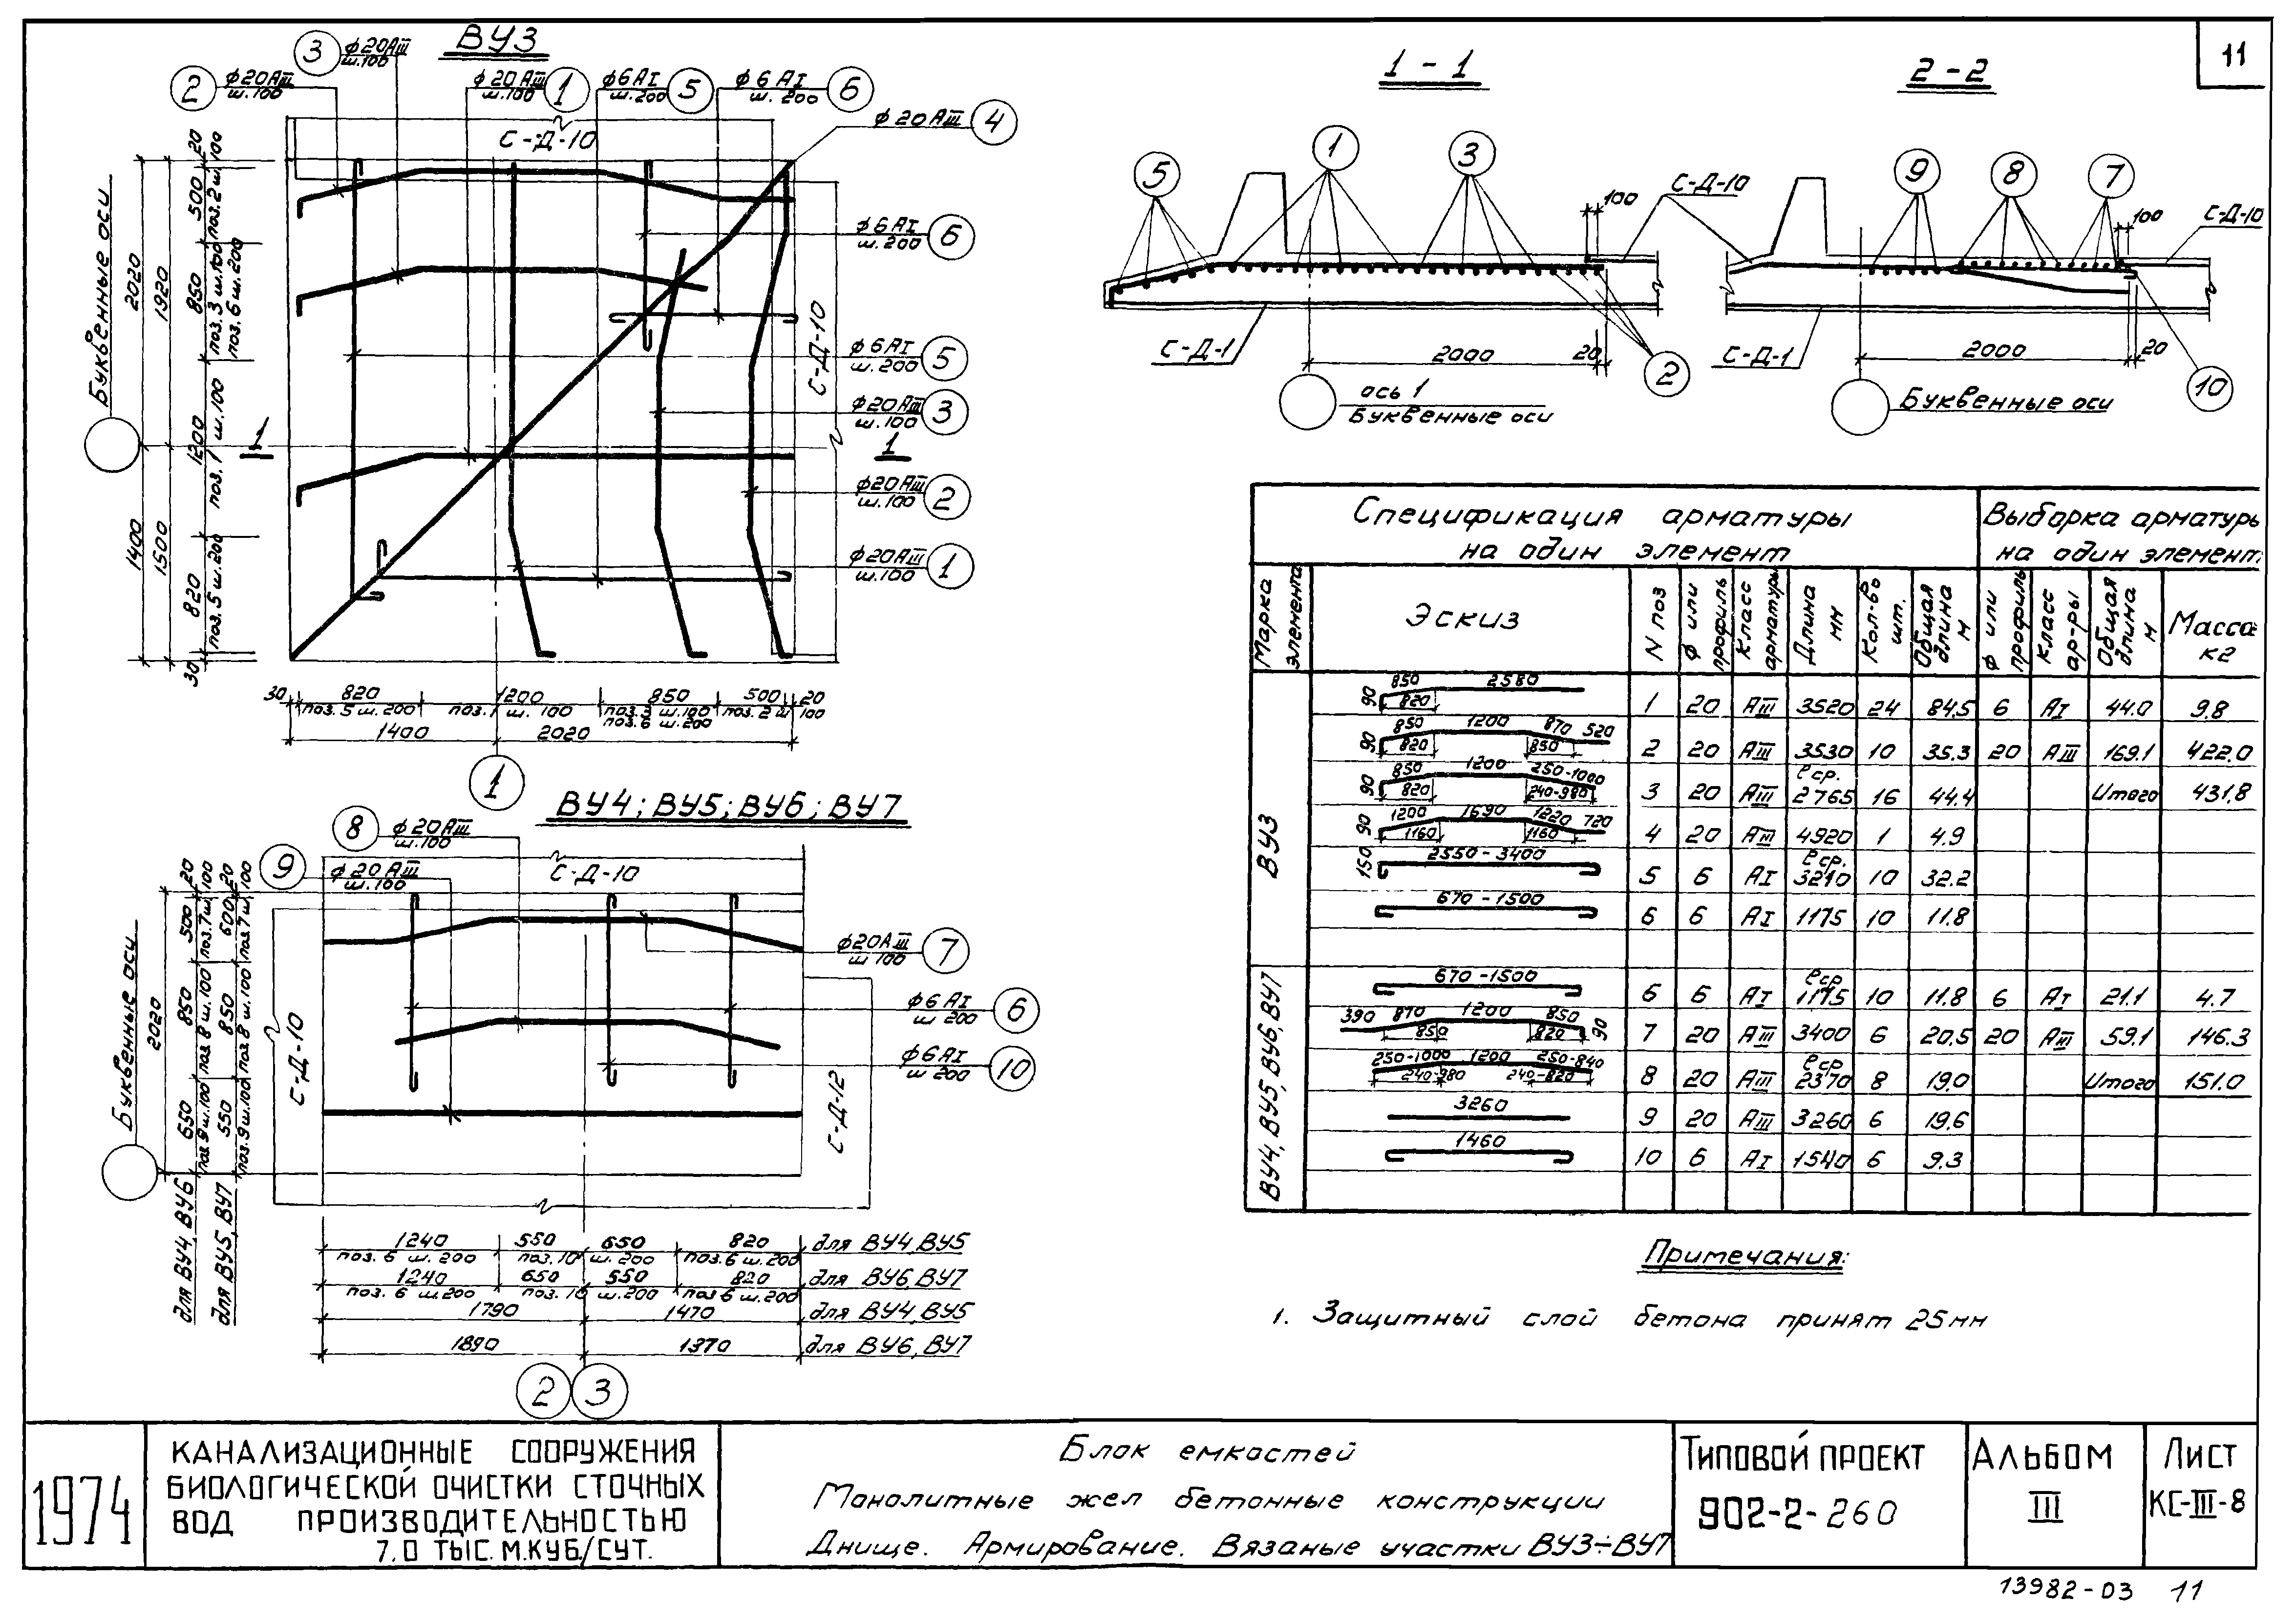 11
ВУ3
3 ф20АIII ш.100
2 ф20АIII ш.100
ф20АIII ш.100 1
ф6АI ш.200 5
ф6АI ш.200 6
ф20АIII 4
С-Д-10
ф6АI ш.200 6
С-Д-10
ф6АI ш.200 5
ф20АIII ш.100 3
1 1
ф20АIII ш.100 2
ф20АIII ш.100 1
Буквенные оси
2020 1400
1920 1500
20 500 850 1200 820 30
100
поз.2 ш.
поз.3 ш.100
поз.6 ш.200
поз.1 ш.100
поз.5 ш.200
30 820 1200 850 500 20
поз.5 ш.200 поз.1 ш.100 поз.3 ш.100 поз.2 ш 100
поз.6 ш.200
1400 2020
1
ВУ4; ВУ5; ВУ6; ВУ7
8 ф20АIII ш.100
9 ф20АIII ш.100
С-Д-10
ф20АIII ш 100 7
ф6АI ш 200 6
ф6АI ш 200 10
С-Д-10
С-Д-12
Буквенные оси
2020
20 500 850 650
100 поз.7 ш. поз.8 ш.100 поз.9 ш.100
20 600 850 550
100 поз.7 ш. поз.8 ш.100 поз.9 ш.100
для ВУ4, ВУ6
для ВУ5, ВУ7
1240 550 650 820 для ВУ4, ВУ5
поз. 6 ш. 200 поз.10 ш.200 поз.6 ш.200
1240 650 550 820 для ВУ6, ВУ7
поз. 6 ш.200 поз. 10 ш.200 поз 6 ш.200
1790 1470 для ВУ4, ВУ5
1890 1370 для ВУ6, ВУ7
2 3
1 - 1
5 1 3
100
С-Д-10
С-Д-1
2000 20
2
ось 1
Буквенные оси
2 - 2
9 8 7
100
С-Д-10
С-Д-1
2000 20
10
Буквенные оси
Спецификация арматуры на один элемент
Выборка арматуры на один элемент
Марка элемента
Эскиз
N поз
ф или профиль
Класс арматуры
Длина мм
Кол-во шт.
Общая длина м
ф или профиль
Класс ар-ры
Общая длина м
Масса кг
ВУ3
90 850 820 2580 1 20 АIII 3520 24 84.5 6 АI 44.0 9.8
90 850 820 1200 870 850 520 2 20 АIII 3530 10 35.3 20 АIII 169.1 422.0
90 850 820 1200 250-1000 240-980 3 20 АIII ℓср. 2765 16 44.4 Итого 431.8
90 1200 1160 1690 1220 1160 720 4 20 АIII 4920 1 4.9
150 2550-3400 5 6 АI ℓср. 3210 10 32.2
670-1500 6 6 АI 1175 10 11.8
ВУ4, ВУ5, ВУ6, ВУ7
670-1500 6 6 АI ℓср 1175 10 11.8 6 АI 21.1 4.7
390 870 850 1200 850 820 90 7 20 АIII 3400 6 20.5 20 АIII 59.1 146.3
250-1000 240-980 1200 250-840 240-820 8 20 АIII ℓср 2370 8 19.0 Итого 151.0
3260 9 20 АIII 3260 6 19.6
1460 10 6 АI 1540 6 9.3
Примечания:
1. Защитный слой бетона принят 25мм
1974
КАНАЛИЗАЦИОННЫЕ СООРУЖЕНИЯ
БИОЛОГИЧЕСКОЙ ОЧИСТКИ СТОЧНЫХ
ВОД ПРОИЗВОДИТЕЛЬНОСТЬЮ
7,0 ТЫС.М.КУБ/СУТ.
Блок емкостей
Монолитные жел бетонные конструкции
Днище. Армирование. Вязаные участки ВУ3÷ВУ7
ТИПОВОЙ ПРОЕКТ
902-2-260
АЛЬБОМ
III
ЛИСТ
КС-III-8
13982-03 11